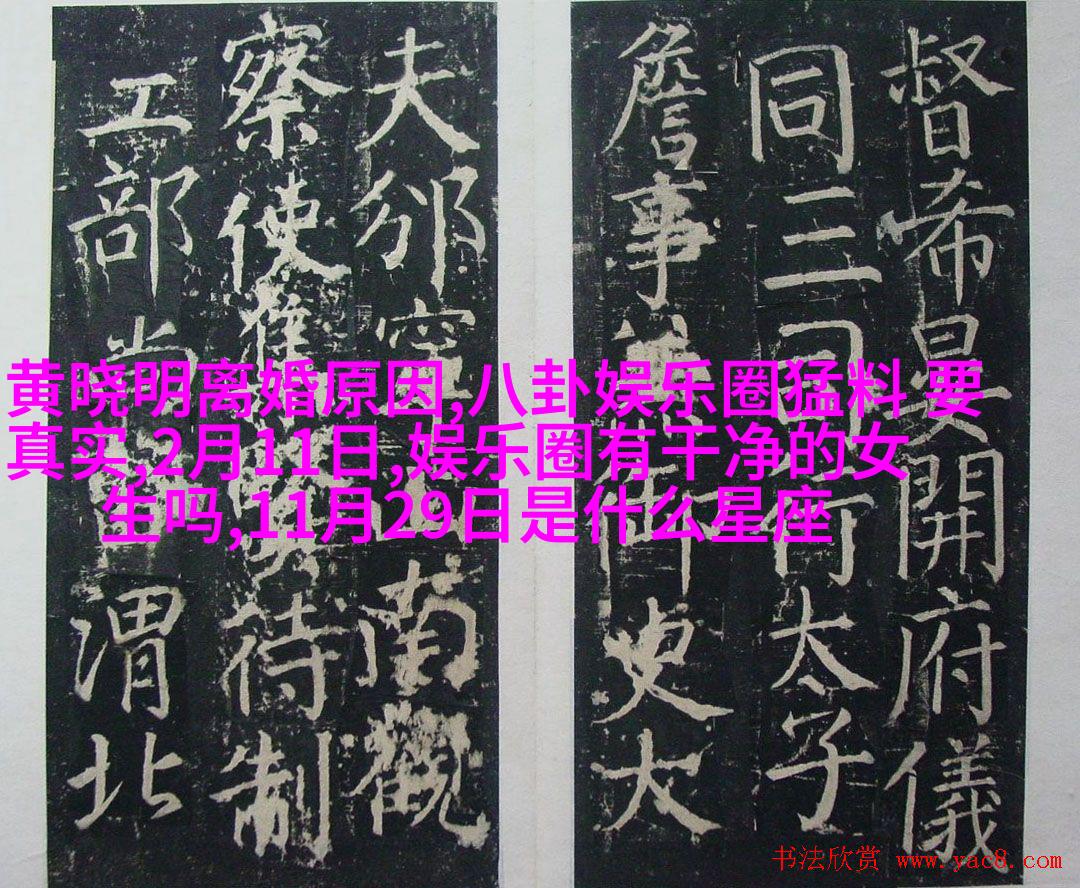 黄晓明离婚原因,八卦娱乐圈猛料 要
真实,2月11日,娱乐圈有干净的女
生吗,11月29日是什么星座
督希晏開府儀
同三司行太子
詹事兼御史大
夫邠寧南觀
察使待制
工部尚渭北
书法欣赏 www.yac8.com